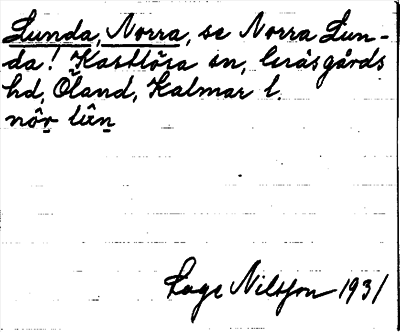 Lunda, Norra, se Norra Lun-
da! Kastlösa sn, Gräsgårds
hd, Öland, Kalmar l.
Lage Nilsson 1931